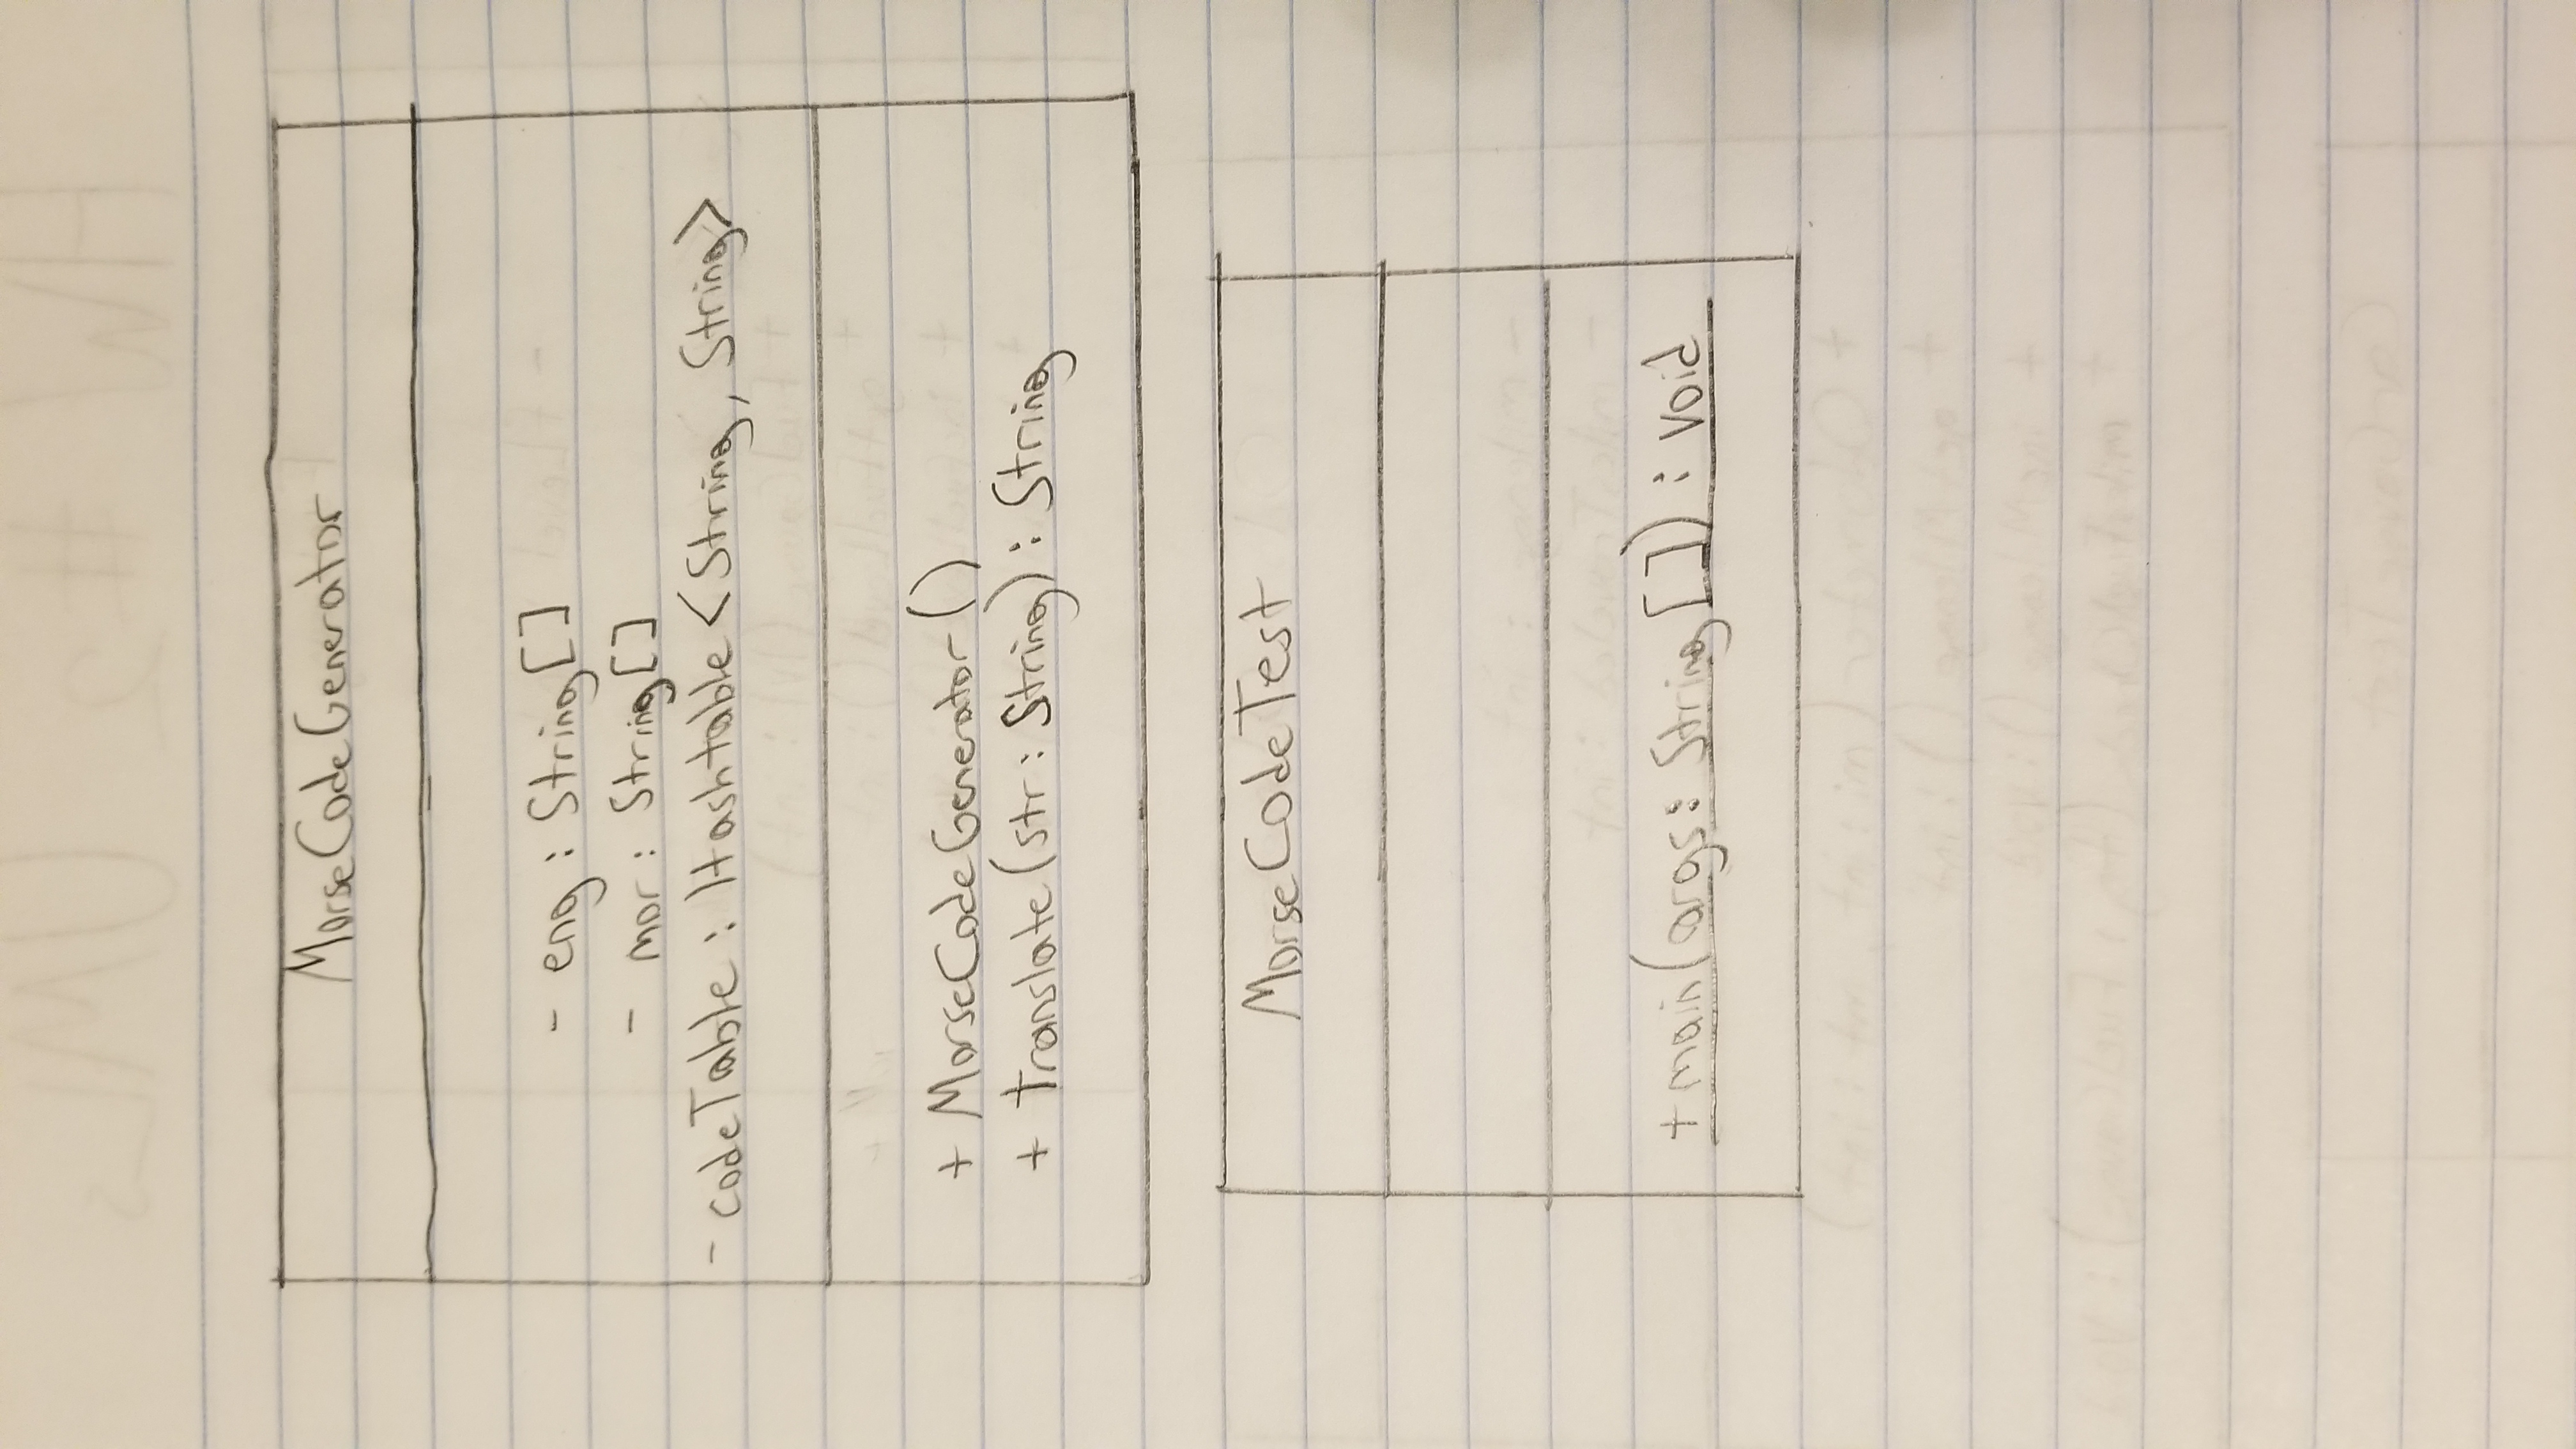 MorseCodeGenerator
- eng : String[]
- mor : String[]
- codeTable : Hashtable<String, String>
+ MorseCodeGenerator()
+ translate(str : String) : String
MorseCodeTest
+main(args: String[]) : void